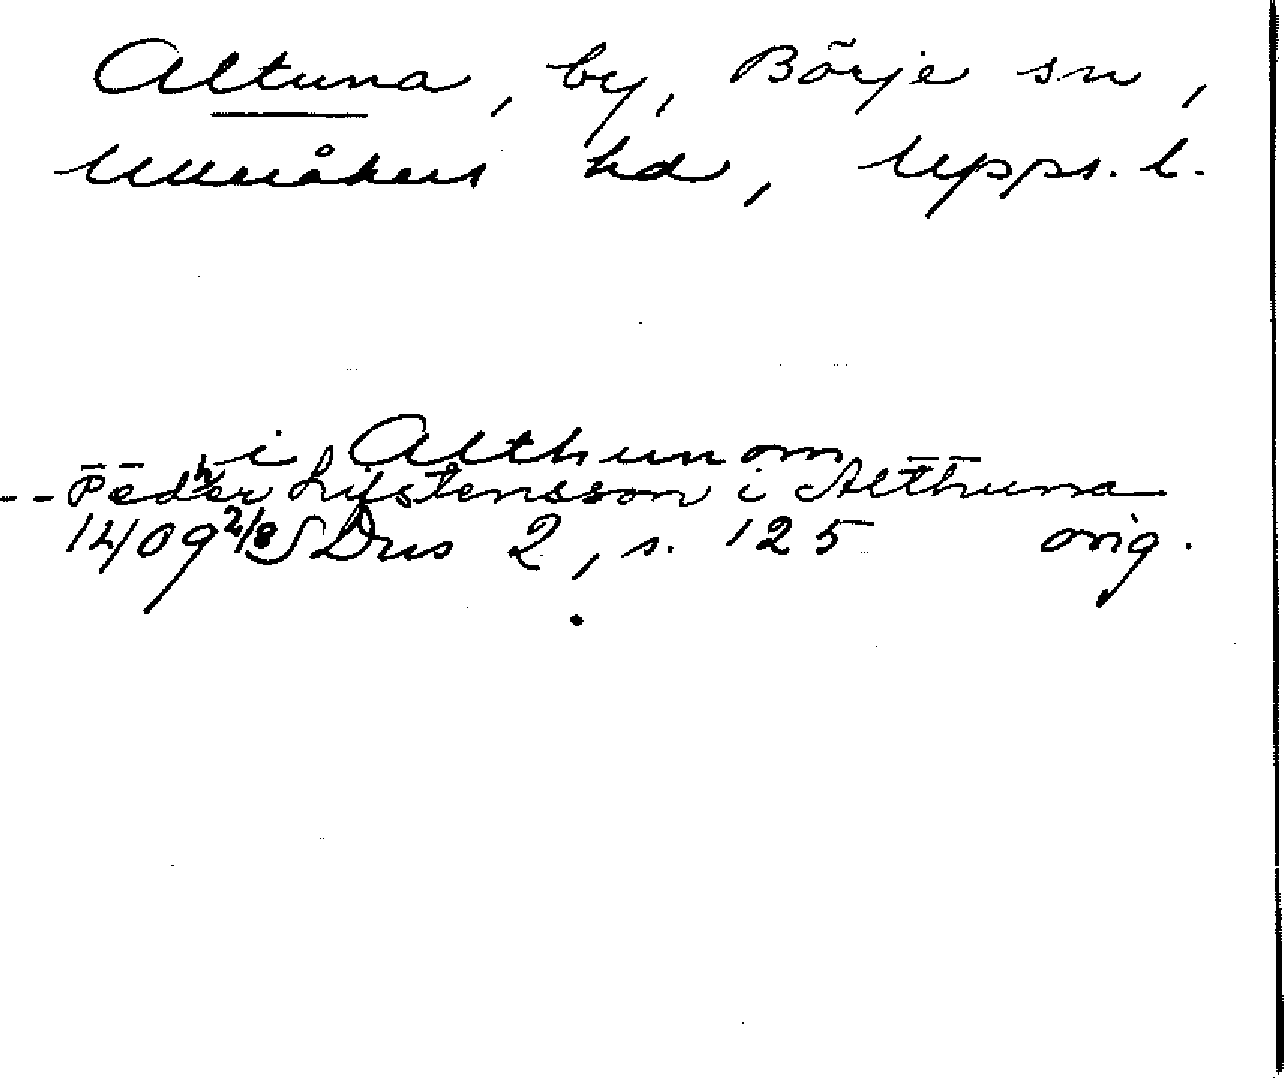 Altuna, by, Börje sn,
Ulleråkers hd, Upps. l.
i Althunom
-- Pedher Lystensson i Althuna
1409 2/8 SDns 2, s. 125 orig.